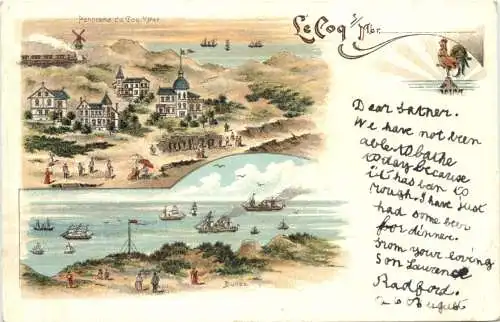 Panorama du Coq s/Mer
Le Coq s/Mer.
Dear Fatner.
We have not been
able to bathe
to day because
it has ben to
rough. I have just
had some beer
for dinner.
from your loving
Son Lawrence
Radford.
August
Dunes.